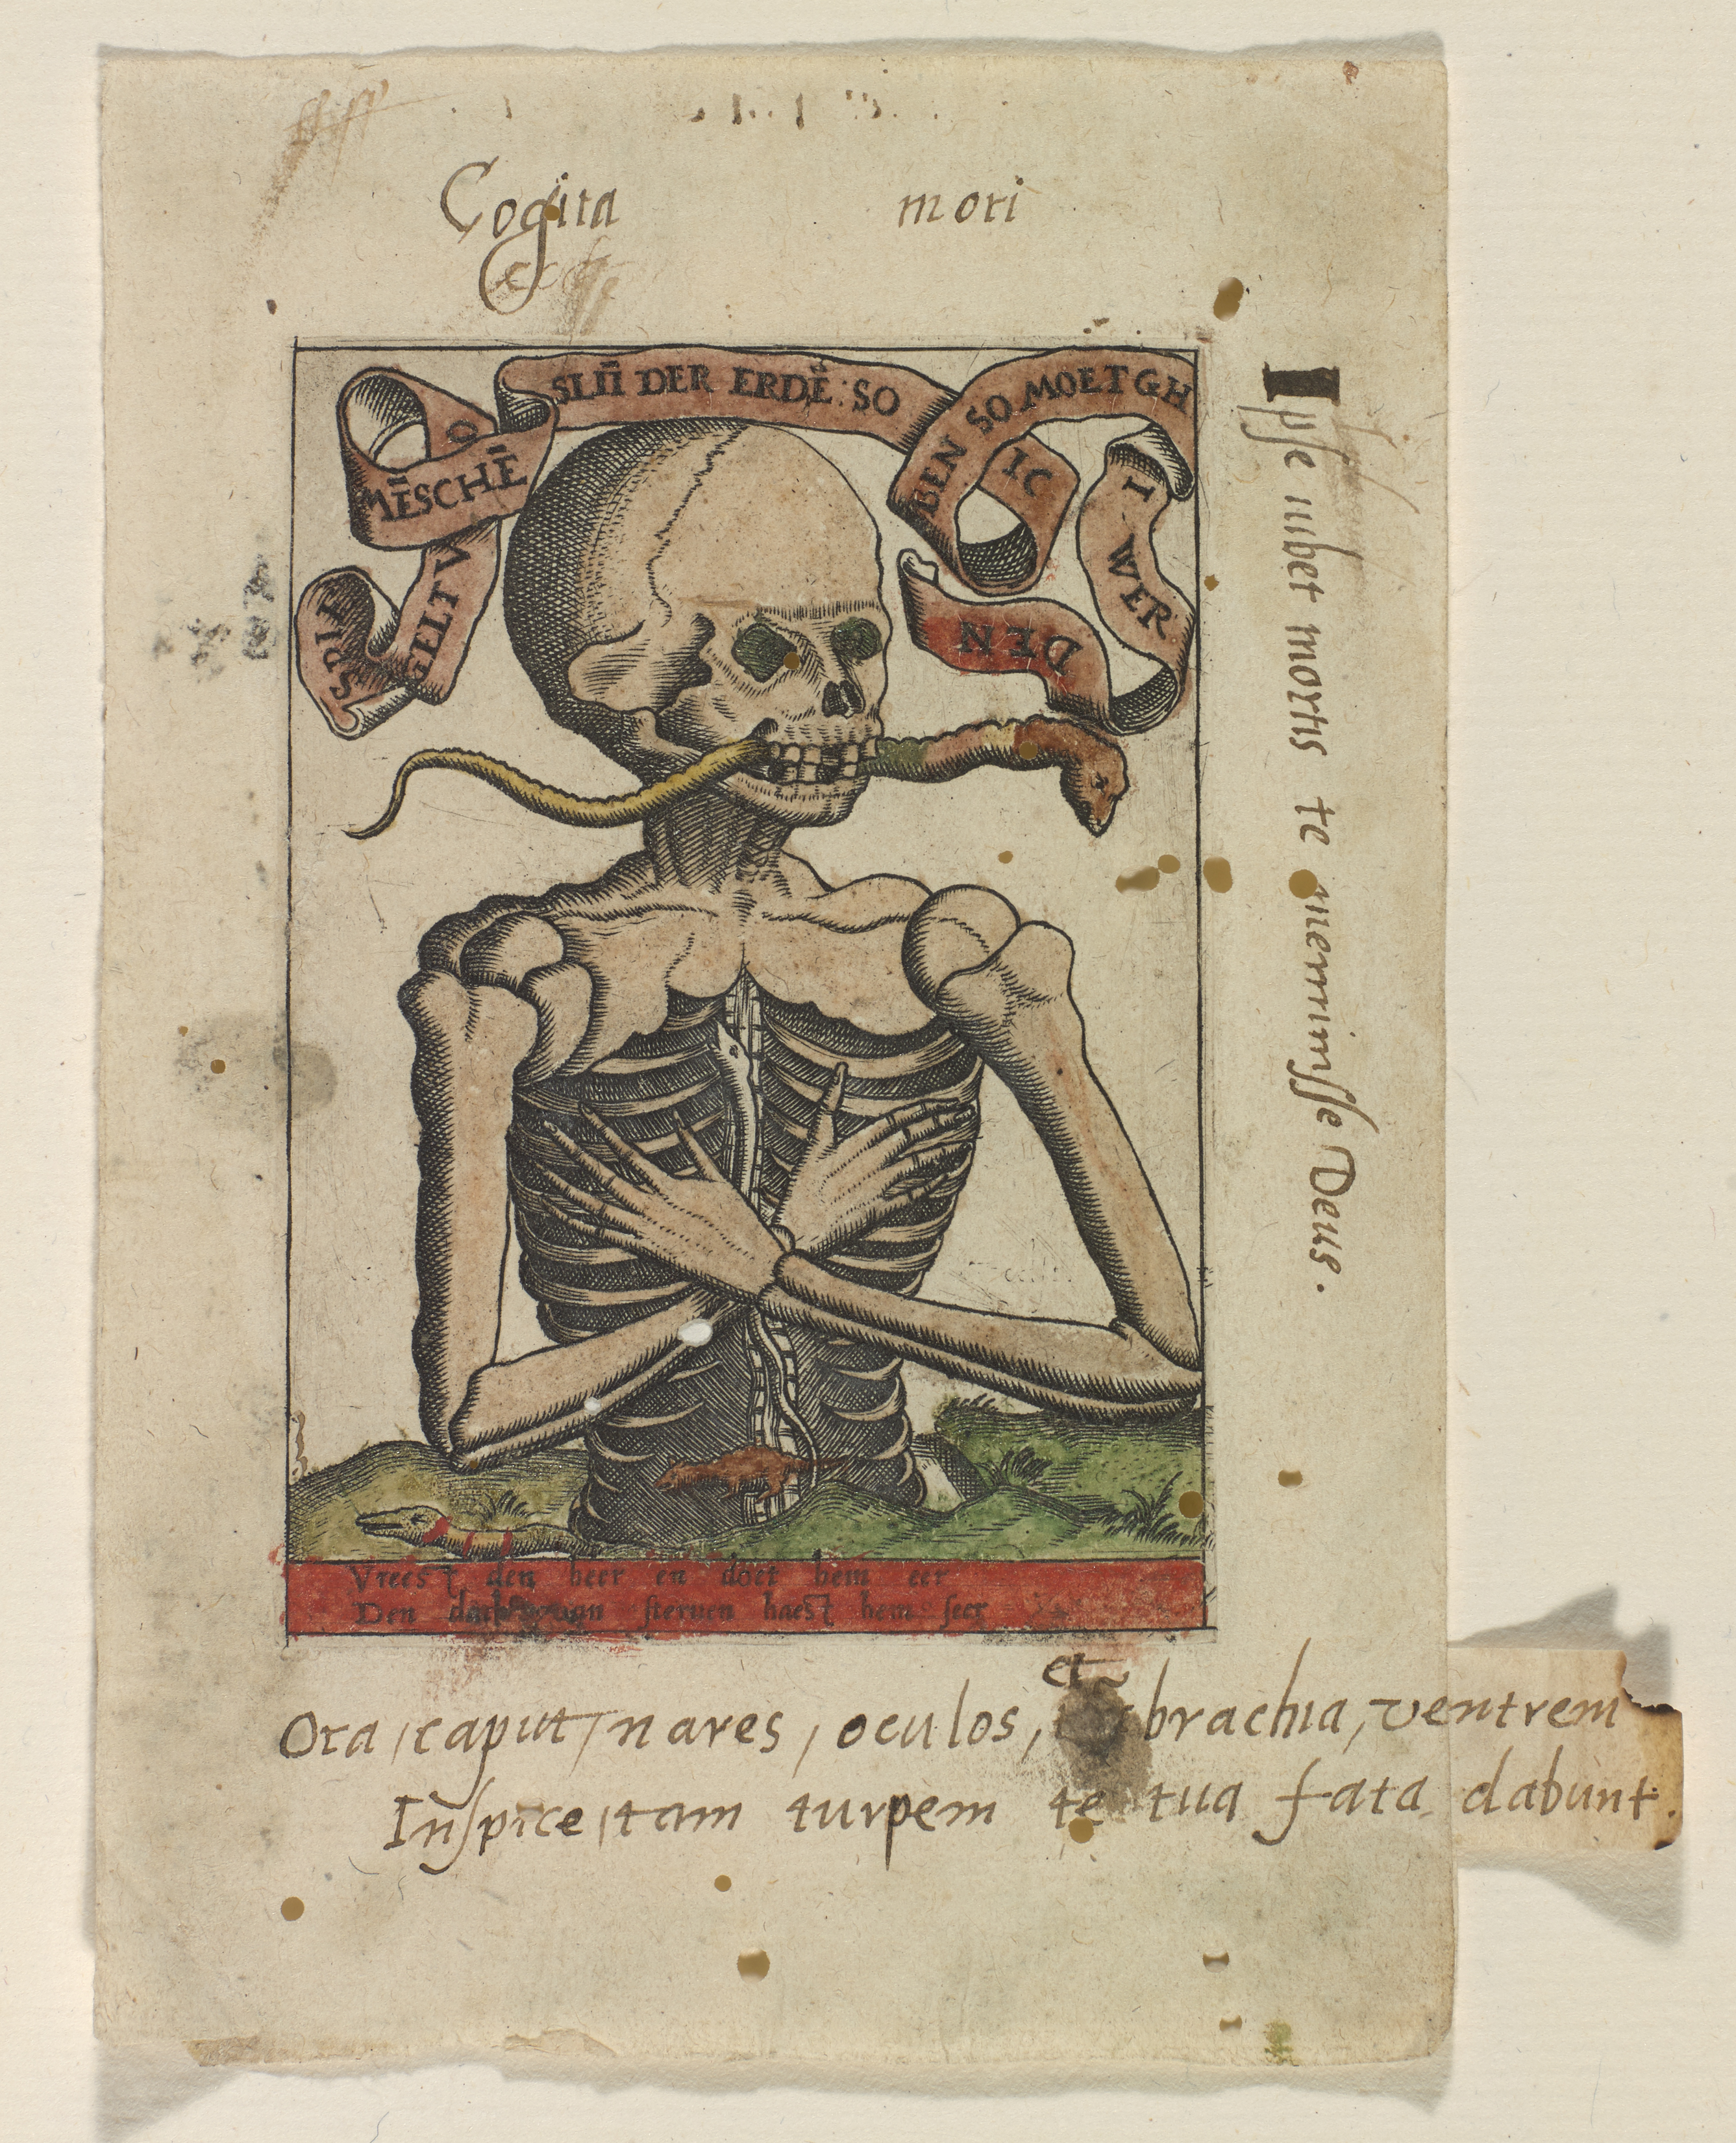 Cogita mori
SPIE
GELT V
O
MĒSCHĒ
SLIĪ DER ERDĒ : SO
IC
BEN SO MOET GH
I WER
DEN
Ipse iubet mortis te meminisse Deus.
Vreest den heer en doet hem eer
Den sterven haest hem seer
et
Ora, caput, nares, oculos, brachia, ventrem
Inspice, tam turpem te tua fata dabunt.